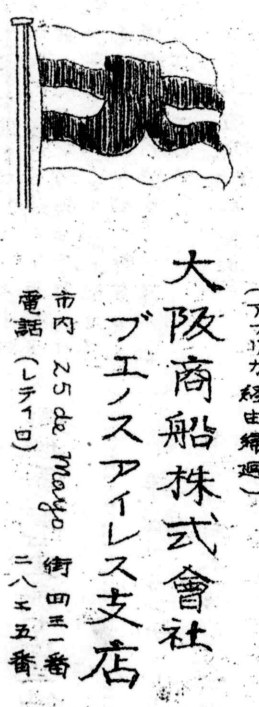 (アフリカ経由帰廻)
大阪商船株式會社
ブエノスアイレス支店
市内 25 de Mayo 街 四三一番
電話 (レティロ) 二八エ五番